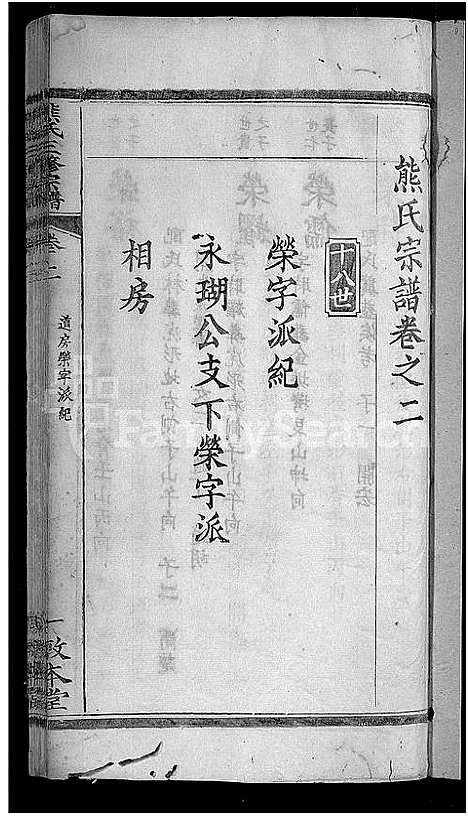 熊氏宗譜卷之二
十八世
榮字派紀
永瑚公支下榮字派
相房
熊氏三修宗譜
卷二
道房榮字派紀
一
敦本堂
FamilySearch